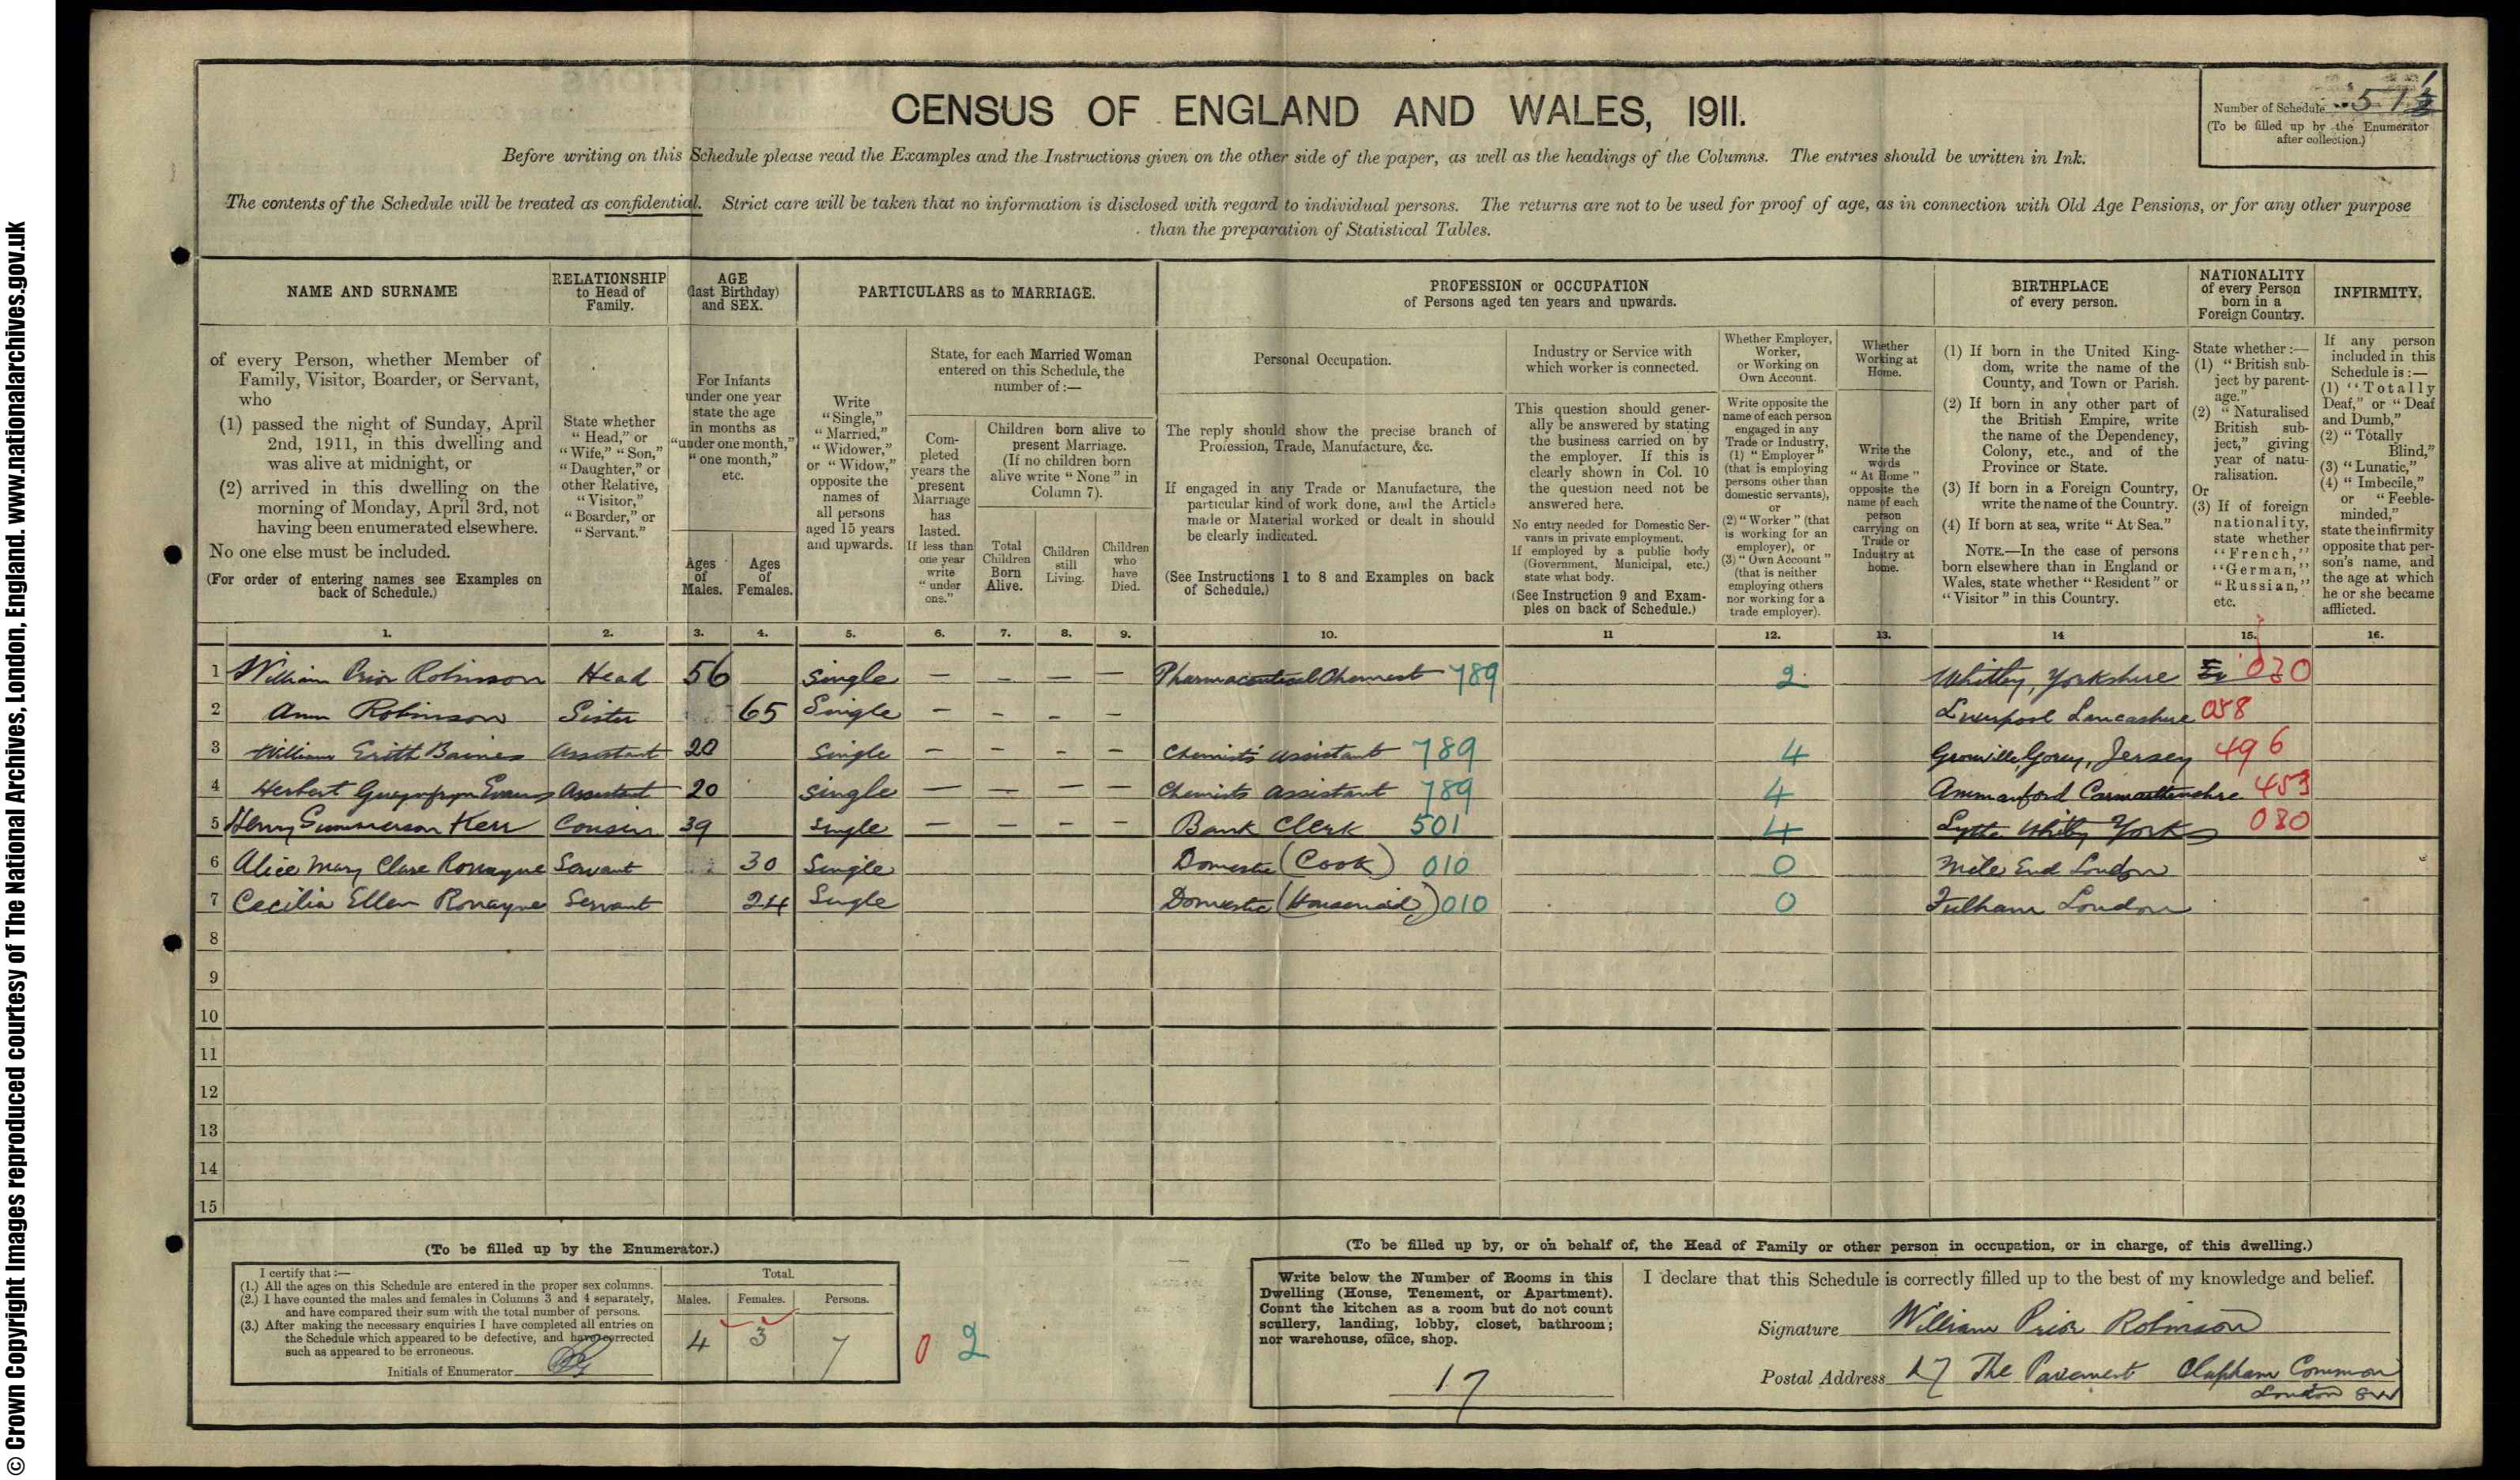 © Crown Copyright Images reproduced courtesy of The National Archives, London, England. www.nationalarchives.gov.uk
CENSUS OF ENGLAND AND WALES, 1911.
Number of Schedule 51
(To be filled up by the Enumerator
after collection.)
Before writing on this Schedule please read the Examples and the Instructions given on the other side of the paper, as well as the headings of the Columns. The entries should be written in Ink.
The contents of the Schedule will be treated as confidential. Strict care will be taken that no information is disclosed with regard to individual persons. The returns are not to be used for proof of age, as in connection with Old Age Pensions, or for any other purpose
than the preparation of Statistical Tables.
NAME AND SURNAME
of every Person, whether Member of
Family, Visitor, Boarder, or Servant,
who
(1) passed the night of Sunday, April
2nd, 1911, in this dwelling and
was alive at midnight, or
(2) arrived in this dwelling on the
morning of Monday, April 3rd, not
having been enumerated elsewhere.
No one else must be included.
(For order of entering names see Examples on
back of Schedule.)
RELATIONSHIP
to Head of
Family.
State whether
"Head," or
"Wife," "Son,"
"Daughter," or
other Relative,
"Visitor,"
"Boarder," or
"Servant."
AGE
(last Birthday)
and SEX.
For Infants
under one year
state the age
in months as
"under one month,"
"one month,"
etc.
Ages
of
Males.
Ages
of
Females.
PARTICULARS as to MARRIAGE.
Write
"Single,"
"Married,"
"Widower,"
or "Widow,"
opposite the
names of
all persons
aged 15 years
and upwards.
State, for each Married Woman
entered on this Schedule, the
number of:—
Com-
pleted
years the
present
Marriage
has
lasted.
If less than
one year
write
"under
one."
Children born alive to
present Marriage.
(If no children born
alive write "None" in
Column 7).
Total
Children
Born
Alive.
Children
still
Living.
Children
who
have
Died.
PROFESSION or OCCUPATION
of Persons aged ten years and upwards.
Personal Occupation.
The reply should show the precise branch of
Profession, Trade, Manufacture, &c.
If engaged in any Trade or Manufacture, the
particular kind of work done, and the Article
made or Material worked or dealt in should
be clearly indicated.
(See Instructions 1 to 8 and Examples on back
of Schedule.)
Industry or Service with
which worker is connected.
This question should gener-
ally be answered by stating
the business carried on by
the employer. If this is
clearly shown in Col. 10
the question need not be
answered here.
No entry needed for Domestic Ser-
vants in private employment.
If employed by a public body
(Government, Municipal, etc.)
state what body.
(See Instruction 9 and Exam-
ples on back of Schedule.)
Whether Employer,
Worker,
or Working on
Own Account.
Write opposite the
name of each person
engaged in any
Trade or Industry,
(1) "Employer"
(that is employing
persons other than
domestic servants),
or
(2) "Worker" (that
is working for an
employer), or
(3) "Own Account"
(that is neither
employing others
nor working for a
trade employer).
Whether
Working at
Home.
Write the
words
"At Home"
opposite the
name of each
person
carrying on
Trade or
Industry at
home.
BIRTHPLACE
of every person.
(1) If born in the United King-
dom, write the name of the
County, and Town or Parish.
(2) If born in any other part of
the British Empire, write
the name of the Dependency,
Colony, etc., and of the
Province or State.
(3) If born in a Foreign Country,
write the name of the Country.
(4) If born at sea, write "At Sea."
NOTE.—In the case of persons
born elsewhere than in England or
Wales, state whether "Resident" or
"Visitor" in this Country.
NATIONALITY
of every Person
born in a
Foreign Country.
State whether:—
(1) "British sub-
ject by parent-
age."
(2) "Naturalised
British sub-
ject," giving
year of natu-
ralisation.
Or
(3) If of foreign
nationality,
state whether
"French,"
"German,"
"Russian,"
etc.
INFIRMITY.
If any person
included in this
Schedule is:—
(1) "Totally
Deaf," or "Deaf
and Dumb,"
(2) "Totally
Blind,"
(3) "Lunatic,"
(4) "Imbecile,"
or "Feeble-
minded,"
state the infirmity
opposite that per-
son's name, and
the age at which
he or she became
afflicted.
1. 2. 3. 4. 5. 6. 7. 8. 9. 10. 11 12. 13. 14 15. 16.
1 William Prior Robinson Head 56 Single — — — — Pharmaceutical Chemist 789 2 Whitby, Yorkshire 030
2 Ann Robinson Sister 65 Single — — — — Liverpool Lancashire 058
3 William Erith Baines Assistant 20 Single — — — — Chemists assistant 789 4 Grouville, Gorey, Jersey 496
4 Herbert Evans Assistant 20 Single — — — — Chemists assistant 789 4 Ammanford Carmarthenshire 453
5 Henry Kerr Cousin 39 Single — — — — Bank Clerk 501 4 Lythe Whitby Yorks 030
6 Alice Mary Clare Ronayne Servant 30 Single Domestic (Cook) 010 0 Mile End London
7 Cecilia Ellen Ronayne Servant 24 Single Domestic (Housemaid) 010 0 Fulham London
8
9
10
11
12
13
14
15
(To be filled up by the Enumerator.)
I certify that:—
(1.) All the ages on this Schedule are entered in the proper sex columns.
(2.) I have counted the males and females in Columns 3 and 4 separately,
and have compared their sum with the total number of persons.
(3.) After making the necessary enquiries I have completed all entries on
the Schedule which appeared to be defective, and have corrected
such as appeared to be erroneous.
Initials of Enumerator
Total.
Males. Females. Persons.
4 3 7
0 2
(To be filled up by, or on behalf of, the Head of Family or other person in occupation, or in charge, of this dwelling.)
Write below the Number of Rooms in this
Dwelling (House, Tenement, or Apartment).
Count the kitchen as a room but do not count
scullery, landing, lobby, closet, bathroom;
nor warehouse, office, shop.
17
I declare that this Schedule is correctly filled up to the best of my knowledge and belief.
Signature William Prior Robinson
Postal Address 17 The Pavement Clapham Common
London SW